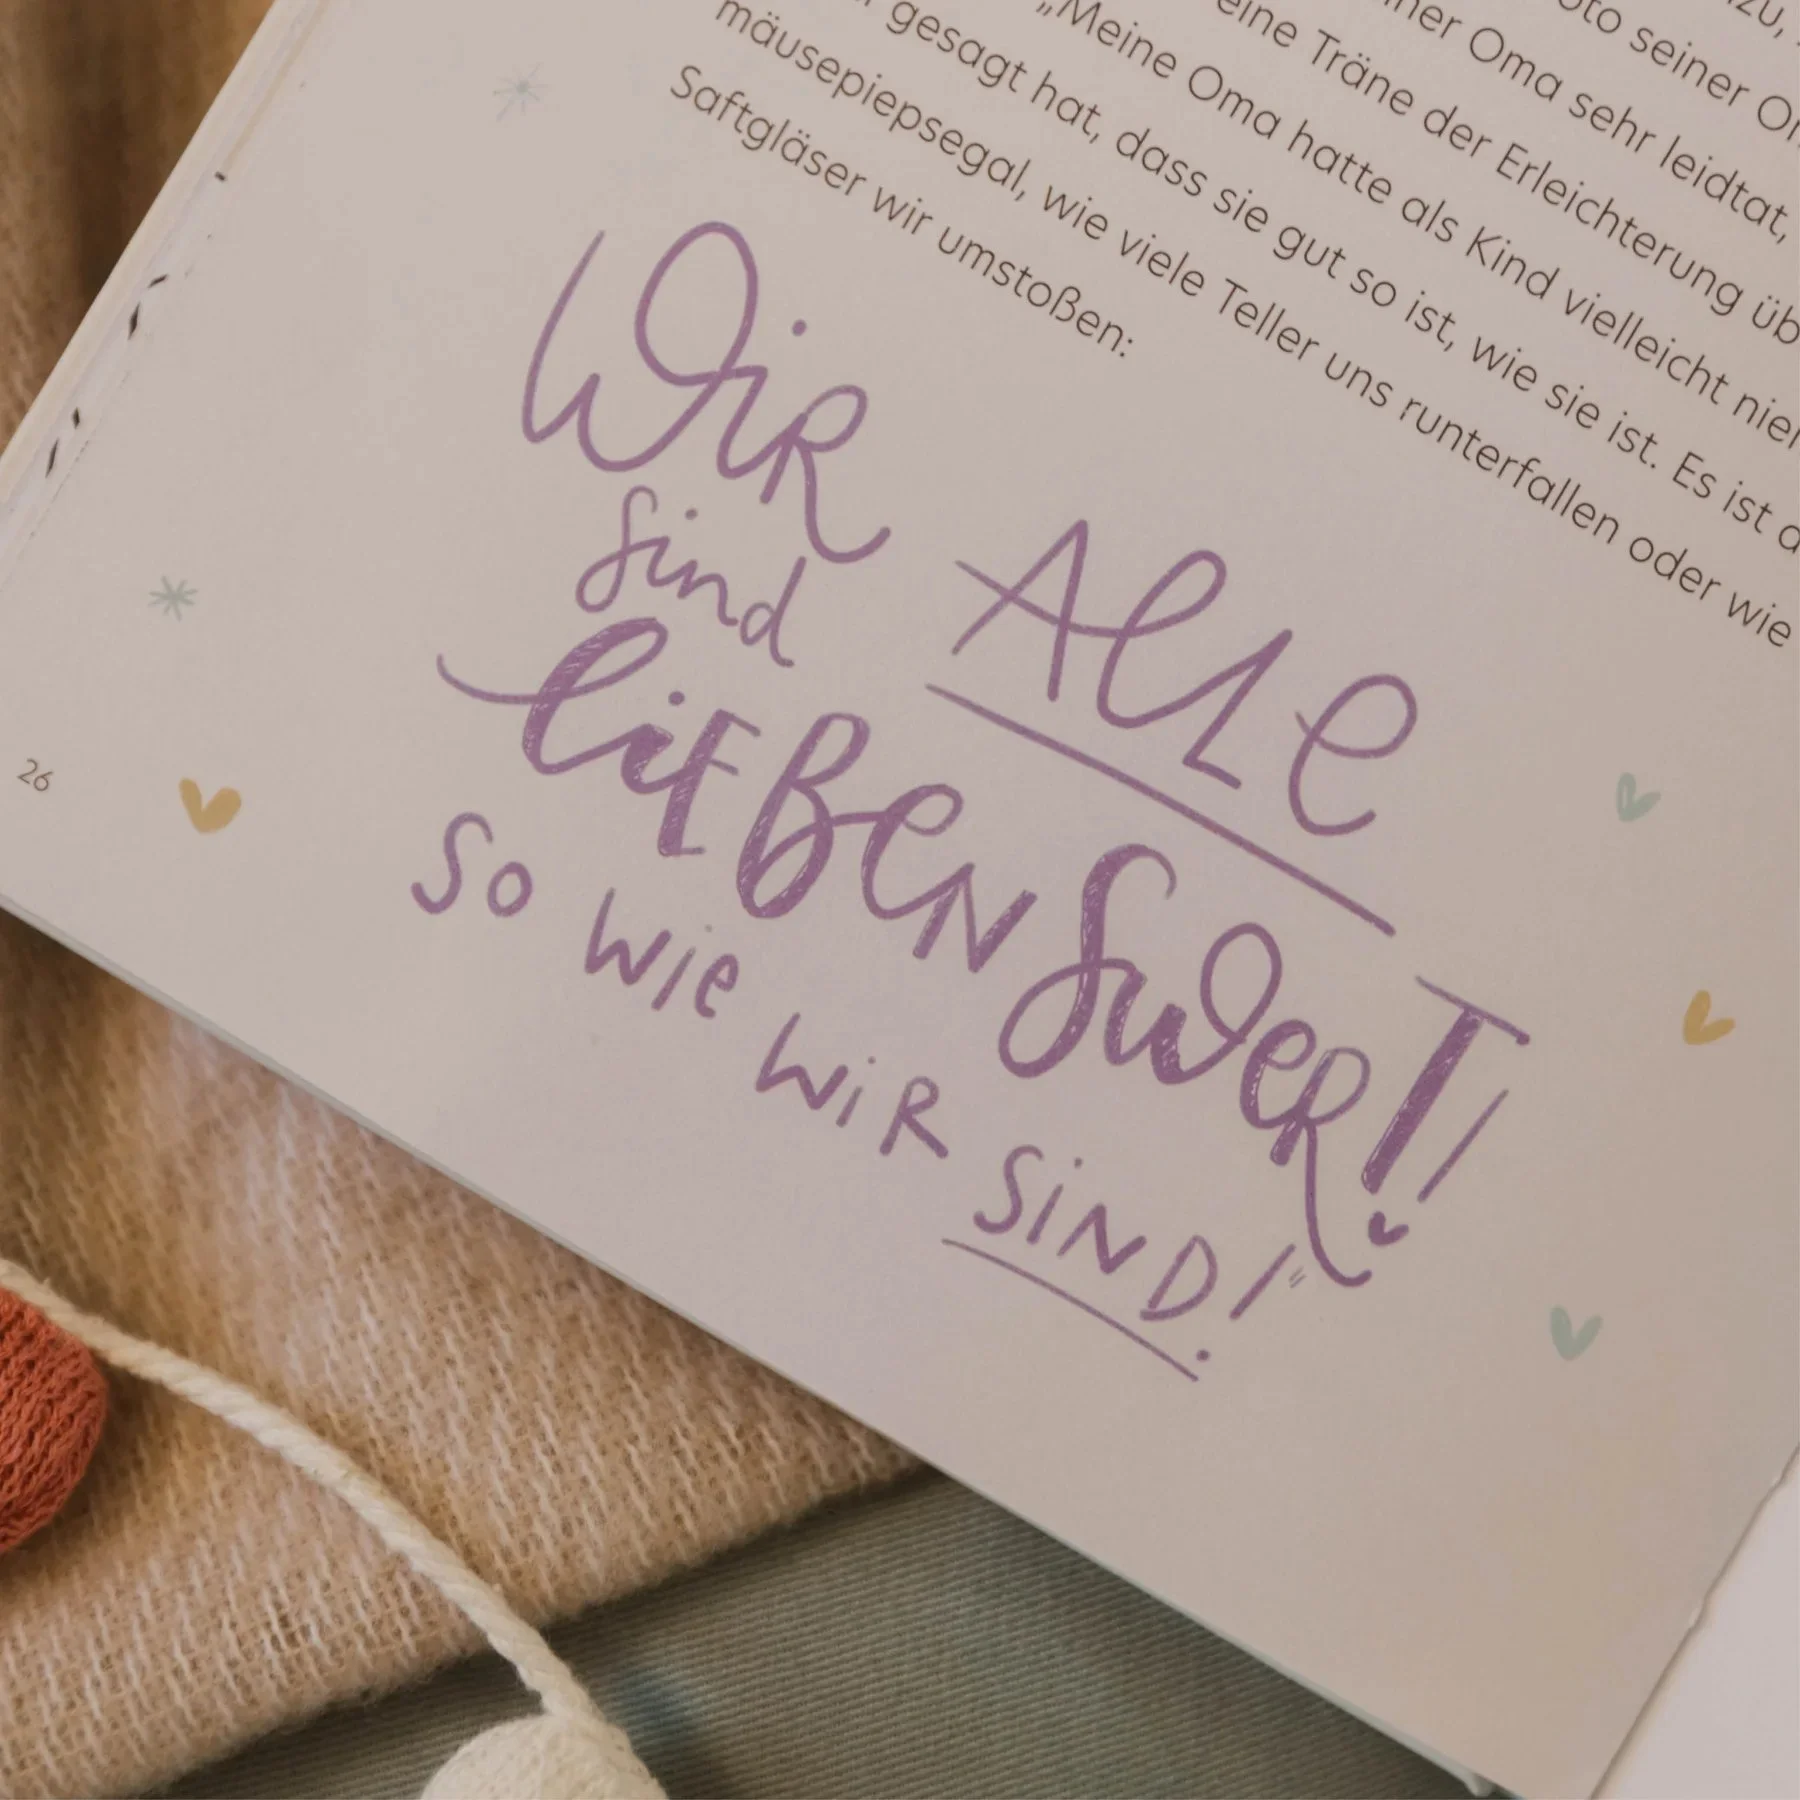 seiner
Oma sehr leidtat,
eine Träne der Erleichterung
„Meine Oma hatte als Kind vielleicht
gesagt hat, dass sie gut so ist, wie sie ist. Es ist
mäusepiepsegal, wie viele Teller uns runterfallen oder wie
Saftgläser wir umstoßen:
WiR
sind ALLe
lieBeNsweRT!
So wie wiR SiND!“
26